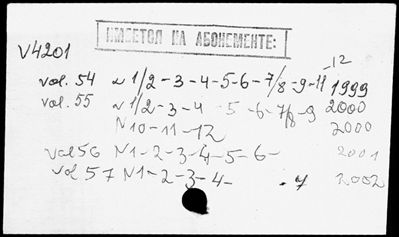 ИМЕЕТСЯ НА АБОНЕМЕНТЕ:
V4201
vol. 54 N1/2-3-4-5-6-7/8-9-11-12 1999
vol. 55 N1/2-3-4-5-6-7/8-9 2000
N10-11-12 2000
vol 56 N1-2-3-4-5-6- 2001
vol 57 N1-2-3-4- 7 2002